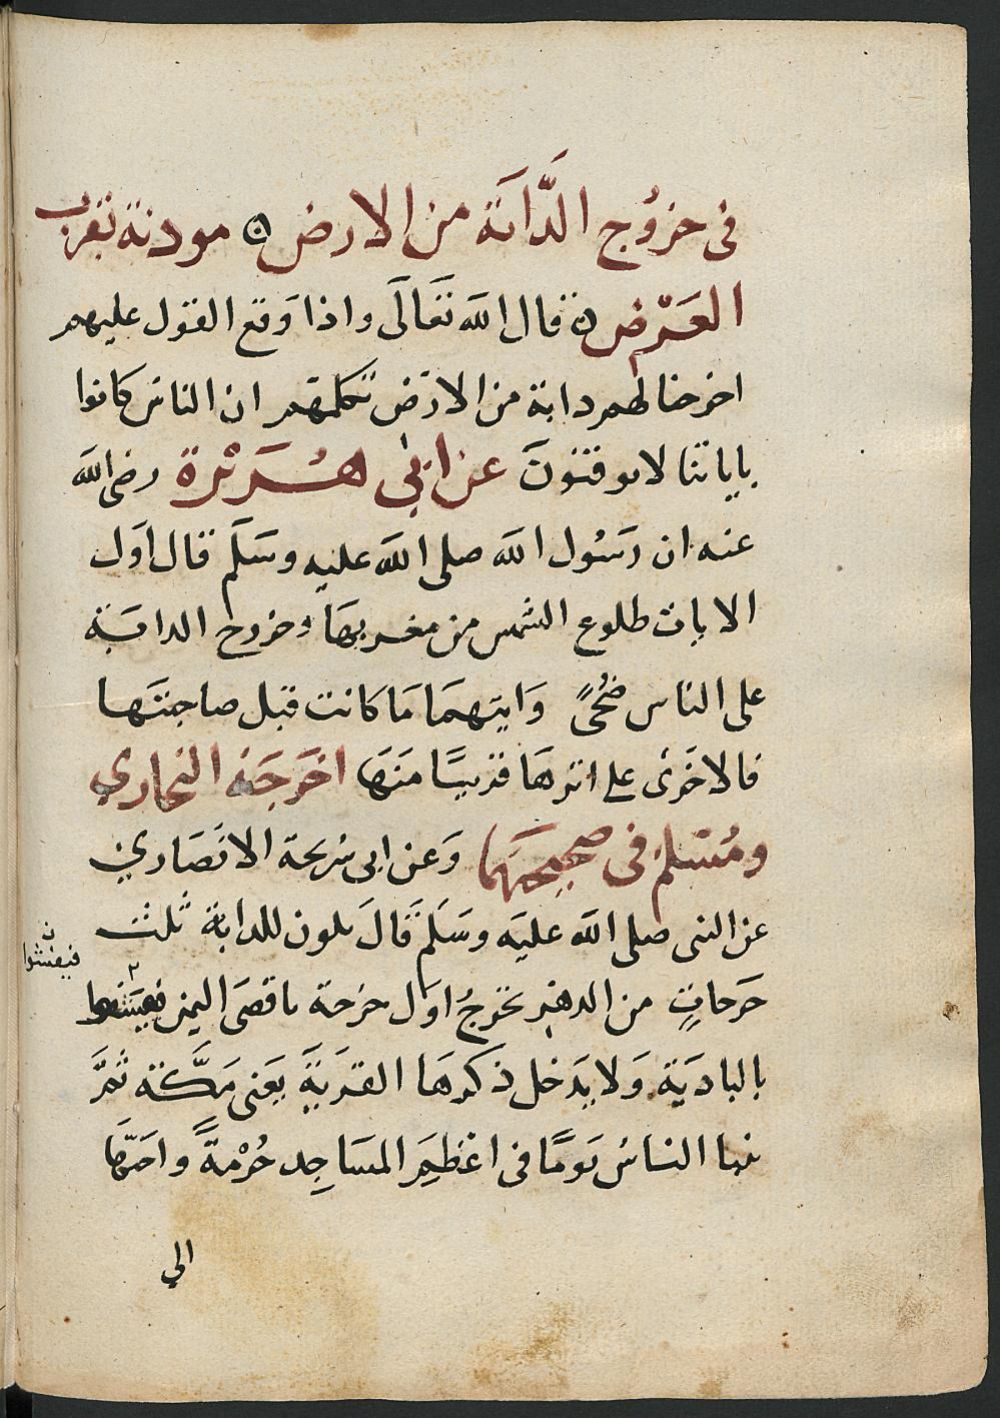 فى خروج الدَّابَة من الارض ه مودنة بقرب
العَرْض ه قال الله تعَالَى واذا وَقع القول عليهم
اخرجنا لهم دابة من الارض تكلمهم ان الناس كانوا
باياتنا لا يوقنونَ عن ابى هُرَيْرة رضى الله
عنه ان رَسُول الله صلى الله عليه وسَلَّم قال اوّل
الايات طلوع الشمس من مغربهَا وخروج الدابَة
على الناس ضُحًى وَايتهمَا مَا كانت قبل صاحبتَها
فالاخرَى على اثرهَا قريبًا منهَا اخرَجَه البخاري
ومُسْلم فى صحيحَيهما وَعن ابى سريحة الانصَاري
عن النبى صلى الله عليَه وسَلم قالَ يكون للدابة ثلث
خرجاتٍ من الدهر تخرجُ اول خرجة باقصَى اليمن فيفشوا
فيفشوا ن
بالباديَة وَلا يدَخل ذكرهَا القريَةَ يعَنى مَكَّة ثمَّ
بينا الناسُ يَومًا فى اعْظمِ المسَاجِد حُرْمةً واحَبّهَا
الى